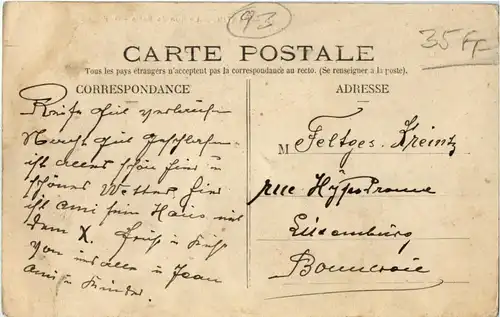 93
35 Ff
CARTE POSTALE
Tous les pays étrangers n'acceptent pas la correspondance au recto. (Se renseigner à la poste).
CORRESPONDANCE
Reise gut verlaufen
Nacht gut geschlafen
ist alles schön hier u
schönes Wetter, hier
ist ami sein Haus mit
dem X. Gruß u Kuß
von uns alle u Jean
ami u Kinder.
ADRESSE
M Feltges. Kreintz
rue Hÿppodrome
Luxemburg
Bonnevoie